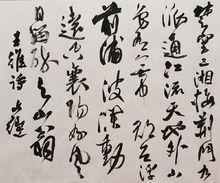 楚塞三湘接荆门九
派通江流天地外山
色有无中郡邑浮
前浦波澜动
远空襄阳好风
日留醉与山翁
王维诗